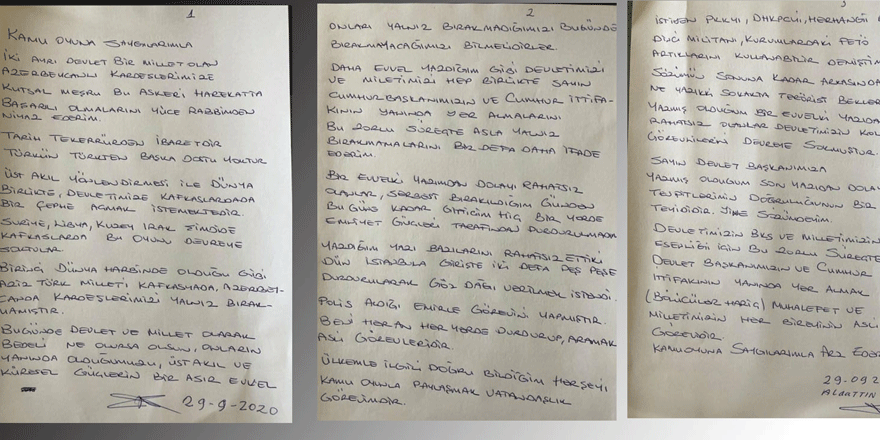 1
KAMU OYUNA SAYGILARIMLA
İKİ AYRI DEVLET BİR MİLLET OLAN
AZERBEYCANLI KARDEŞLERİMİZE
KUTSAL MEŞRU BU ASKERİ HAREKATTA
BAŞARILI OLMALARINI YÜCE RABBİMDEN
NİYAZ EDERİM.
TARİH TEKERRÜRDEN İBARETDİR
TÜRKÜN TÜRKTEN BAŞKA DOSTU YOKTUR
ÜST AKIL YÖNLENDİRMESİ İLE DÜNYA
BİRLİKTE, DEVLETİMİZE KAFKASLARDADA
BİR CEPHE AÇMAK İSTEMEKTEDİR.
SURİYE, LİBYA, KUZEY IRAK ŞİMDİDE
KAFKASLARDA BU OYUNU DEVREYE
SOKTULAR
BİRİNCİ DÜNYA HARBİNDE OLDUĞU GİBİ
AZİZ TÜRK MİLLETİ KAFKASYADA, AZERBEY-
CANDA KARDEŞLERİMİZİ YALNIZ BIRAK-
MAMIŞTIR.
BUGÜNDE DEVLET VE MİLLET OLARAK
BEDELİ NE OLURSA OLSUN, ONLARIN
YANINDA OLDUĞUMUZU, ÜST AKIL VE
KÜRESEL GÜÇLERİN BİR ASIR EVVEL
29-9-2020
2
ONLARI YALNIZ BIRAKMADIĞIMIZI BUGÜNDE
BIRAKMAYACAĞIMIZI BİLMELİDİRLER.
DAHA EVVEL YAZDIĞIM GİBİ DEVLETİMİZİ
VE MİLETİMİZİ HEP BİRLİKTE SAYIN
CUMHURBAŞKANIMIZIN VE CUMHUR İTTİFA-
KININ YANINDA YER ALMALARINI
BU ZORLU SÜREÇTE ASLA YALNIZ
BIRAKMAMALARINI BİR DEFA DAHA İFADE
EDERİM.
BİR EVVELKİ YAZIMDAN DOLAYI RAHATSIZ
OLANLAR, SERBEST BIRAKILDIĞIM GÜNDEN
BU GÜNE KADAR GİTTİĞİM HİÇ BİR YERDE
EMNİYET GÜÇLERİ TARAFINDAN DURDURULMADIM
YAZDIĞIM YAZI BAZILARINI RAHATSIZ ETTİKİ
DÜN İSTANBULA GİRİŞTE İKİ DEFA PEŞ PEŞE
DURDURULARAK GÖZ DAĞI VERİLMEK İSTENDİ.
POLİS ALDIĞI EMİRLE GÖREVİNİ YAPMIŞTIR.
BENİ HER AN HER YERDE DURDURUP, ARAMAK
ASLİ GÖREVLERİDİR.
ÜLKEMLE İLGİLİ DOĞRU BİLDİĞİM HERŞEYİ
KAMU OYUYLA PAYLAŞMAK VATANDAŞLIK
GÖREVİMDİR.
3
İSTİYEN PKKYI, DHKPCYİ, HERHANGİ
MİLİTANI, KURUMLARDAKİ FETÖ
ARTIKLARINI KULLANABİLİR DEMİŞTİM
SÖZÜMÜN SONUNA KADAR ARKASINDA
NE YAZIKKİ SOKAKTA TERÖRİST BEKLER
YAZMIŞ OLDUĞUM BİR EVVELKİ YAZIDA
RAHATSIZ OLANLAR DEVLETİMİZİN KOL
GÖREVLİLERİNİ DEVREYE SOKMUŞTUR.
SAYIN DEVLET BAŞKANIMIZA
YAZMIŞ OLDUĞUM SON YAZIDAN DOLA
TESPİTLERİMİN DOĞRULUĞUNUN BİR
TEYİDİDİR. YİNE SÖZÜMDEYİM.
DEVLETİMİZİN BKS VE MİLLETİMİZİN
ESENLİĞİ İÇİN BU ZORLU SÜREÇTE
DEVLET BAŞKANIMIZIN VE CUMHUR
İTTİFAKININ YANINDA YER ALMAK
(BÖLÜCÜLER HARİÇ) MUHALEFET VE
MİLLETİMİZİN HER BİREYİNİN ASLİ
GÖREVİDİR.
KAMUOYUNA SAYGILARIMLA ARZ EDER
29-09-2
ALAATTİN